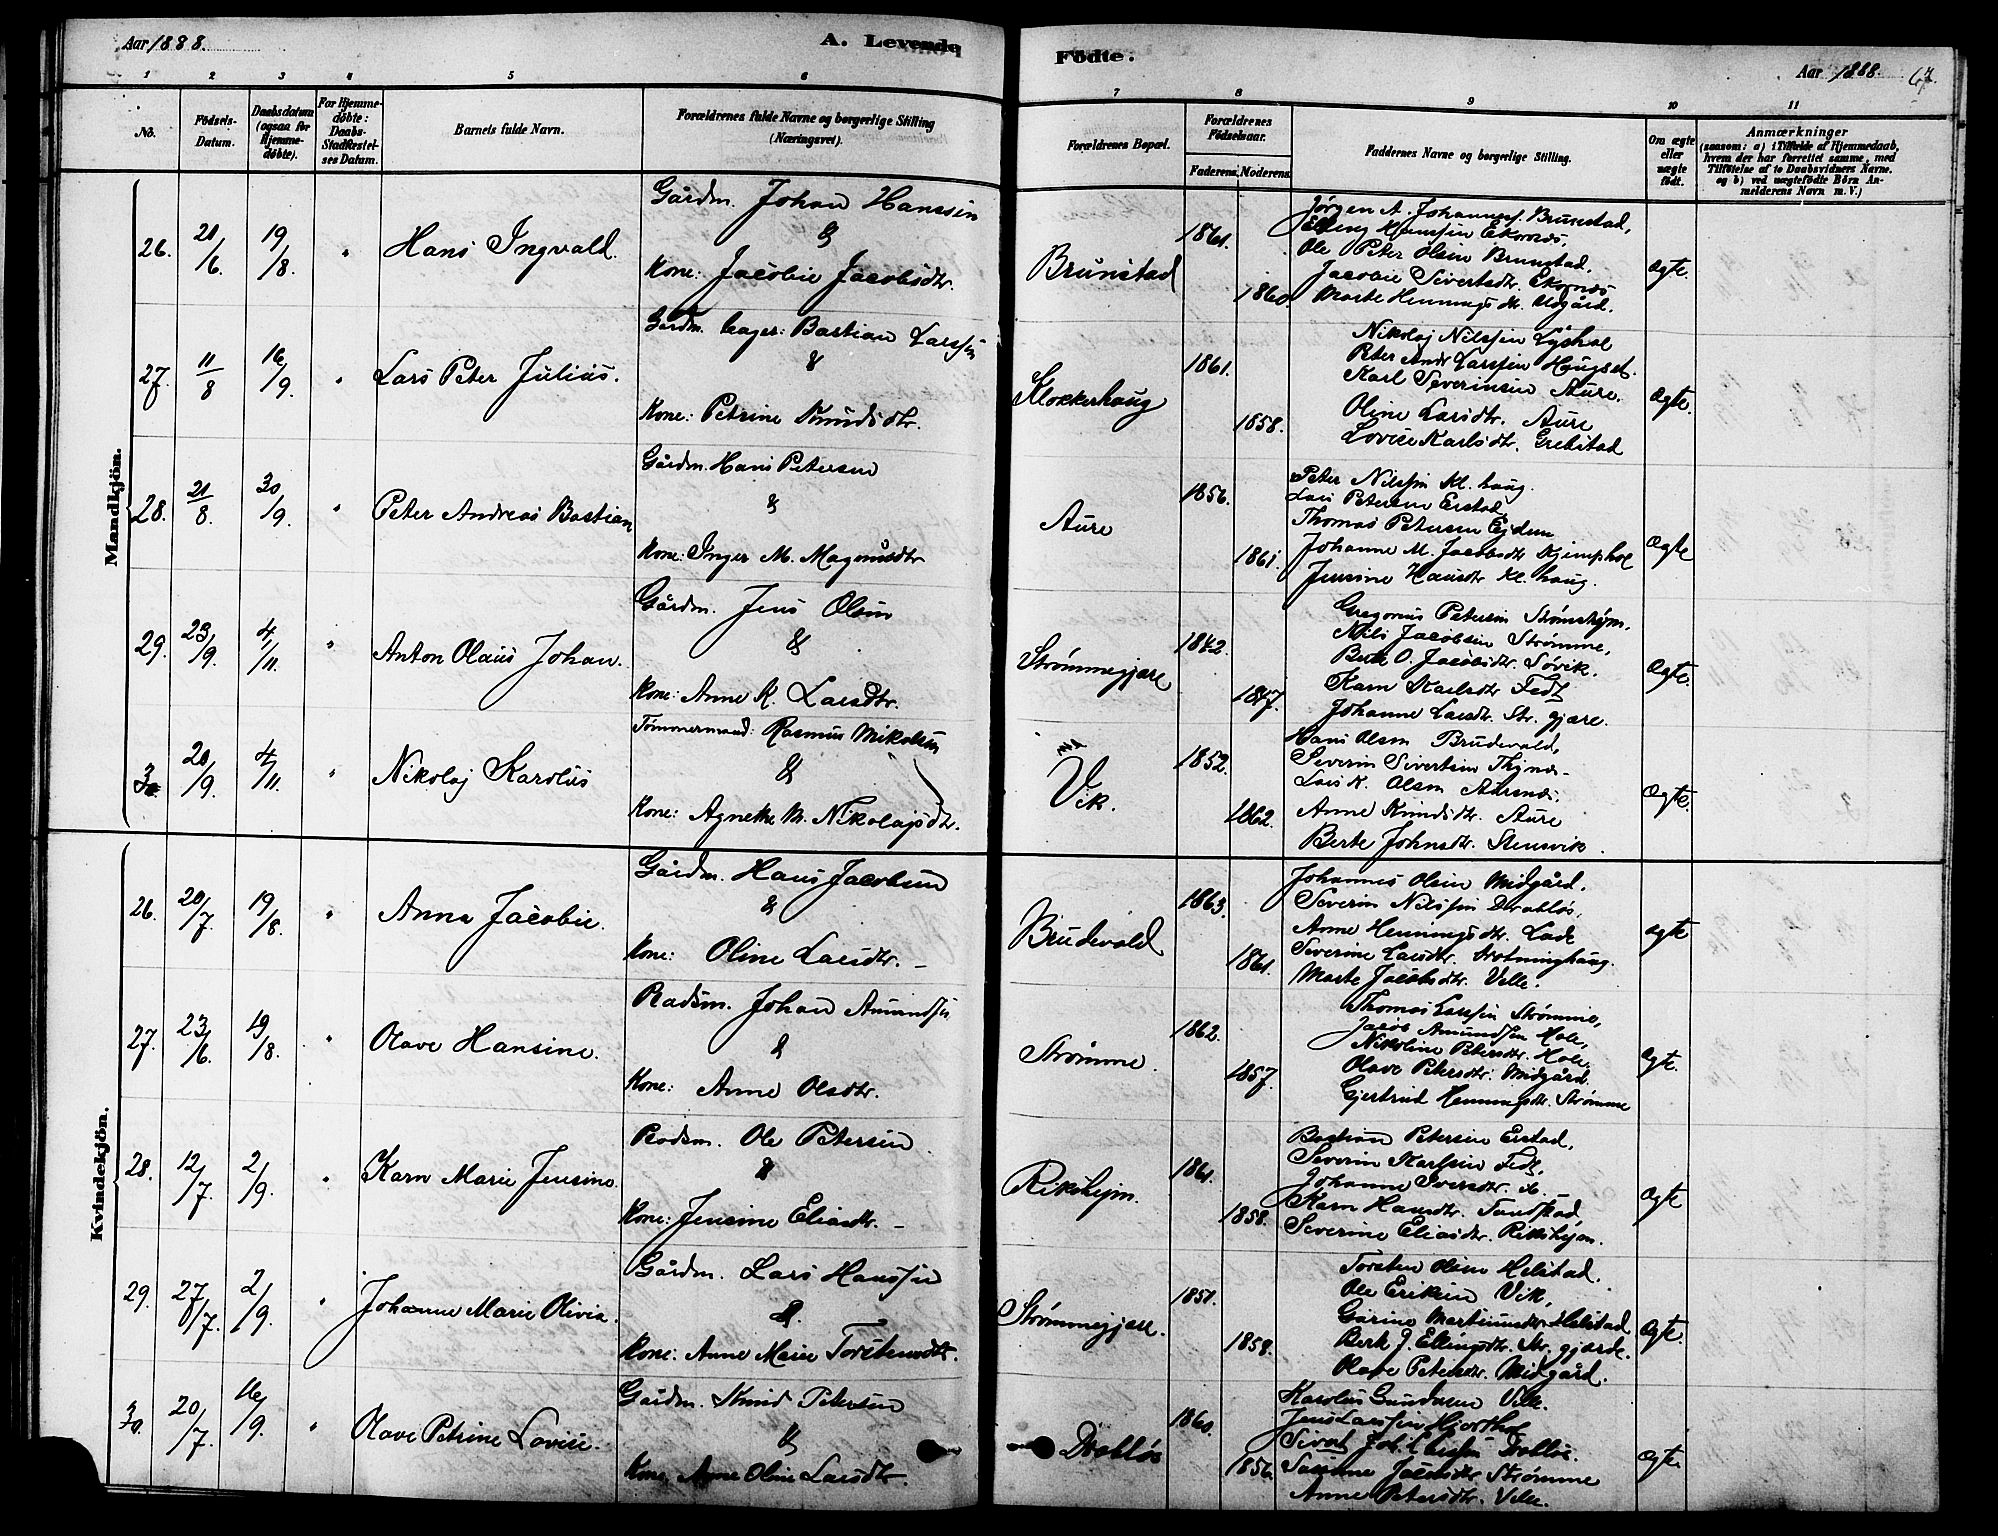 Aar 1888.
A. Levende
Födte.
Aar 1888.
67.
1 2 3 4 5 6 7 8 9 10 11
No.
Födsels-
Datum.
Daabsdatum
(ogsaa for
Hjemme-
döbte).
For Hjemme-
döbte:
Daabs-
Stadfæstel-
ses Datum.
Barnets fulde Navn.
Forældrenes fulde Navne og borgerlige Stilling
(Næringsvei).
Forældrenes Bopæl.
Forældrenes
Födselsaar.
Faderens. Moderens.
Faddernes Navne og borgerlige Stilling.
Om ægte
eller
uægte
födt.
Anmærkninger
(saasom: a) i Tilfælde af Hjemmedaab,
hvem der har forrettet samme, med
Tilföielse af to Daabsvidners Navne.
og b) ved uægtefödte Börn An-
melderens Navn m. V.)
Mandkjön.
26. 21/6 19/8 " Hans Ingvald.
Gårdm. Johan Hanssen
&
Kone: Jacobie Jacobsdtr.
Brunstad
1861.
1860.
Jørgen A. Johannes. Brunstad,
Elling Hanssen Ekornæs,
Ole Peter Olsen Brunstad,
Jacobie Sivertsdtr. Ekornæs
Marte Hennings dtr. Midgård.
Ægte.
27. 11/8 16/9 " Lars Peter Julius.
Gårdm. Bager: Bastian Larssen
&
Kone: Petrine Knudsdtr.
Klokkerhaug
1861.
1858.
Nikolaj Nilssen Lyshol
Peter Andr Larssen Haugset.
Karl Severinsen Aure.
Oline Larsdtr. Aure
Lovise Karlsdtr. Grebstad
Ægte.
28. 21/8. 30/9. " Peter Andreas Bastian
Gårdm. Hans Petersen
&
Kone: Inger M. Magnusdtr
Aure
1856.
1861.
Peter Nilssen Kl. haug.
Lars Petersen Erstad
Thomas Petersen Ejdem
Johanne M. Jacobsdtr Kjemphol
Jensine Hansdtr Kl. haug.
Ægte
29. 23/9. 4/11. " Anton Olaus Johan.
Gårdm. Jens Olsen
&
Kone: Anne K. Larsdtr.
Strømmegjære
1842.
1847.
Gregorius Petersen Strømshejm,
Nils Jacobsen Strømme,
Berte O. Jacobsdtr. Søvik.
Karn Karlsdtr Fedt
Johanne Larsdtr. Str. gjære.
Ægte.
30. 20/9. 4/11. " Nikolaj Karolus
Tømmermand: Rasmus Mikalsen
&
Kone: Agnethe M. Nikolajsdtr.
Vik.
1852.
1862.
Hans Olsen Brudevold,
Severin Sivertsen Thynæs
Lars K. Olsen Aursnæs.
Anne Knudsdtr. Aure
Berte Johnsdtr. Stensvik.
Ægte.
Kvindekjön.
26. 20/7 19/8. " Anna Jacobie.
Gårdm. Hans Jacobsen
&
Kone: Oline Larsdtr. —
Brudevold
1863.
1861.
Johannes Olsen Midgård.
Severin Nilssen Drabløs,
Anne Henningsdtr. Lade
Severine Larsdtr. Drotninghaug.
Marte Jacobsdtr. Velle.
Ægte
27. 23/6 19/8. " Olave Hansine.
Pladsm. Johan Amundsen
&
Kone: Anne Olsdtr.
Strømme.
1862.
1857.
Thomas Larssen Strømme,
Jacob Amundsen Hole,
Nikoline Petersdtr. Hole,
Olave Petersdtr. Midgård.
Gjertrud Henningsdtr. Strømme
Ægte.
28. 12/7. 2/9. " Karn Marie Jensine.
Pladsm. Ole Petersen
&
Kone: Jensine Eliasdtr. —
Rikshejm.
1861.
1858.
Bastian Petersen Erstad,
Severin Karlssen Fedt,
Johanne Iversdtr. ib. —
Karn Hansdtr. Tandstad
Severine Eliasdtr. Rikshejm.
Ægte
29. 27/7. 2/9. " Johanne Marie Olivia.
Gårdm. Lars Hanssen
&.
Kone: Anne Marie Torstensdtr.
Strømmegjære.
1851.
1858.
Torsten Olsen Helstad.
Ole Eriksen Vik,
Gurine Martinusdtr. Helstad
Berte J. Ellingsdtr. Str. gjærde.
Olave Petersdtr. Midgård.
Ægte.
30. 20/7. 16/9. " Olave Petrine Lovise.
Gårdm. Knud Petersen
&
Kone, Anne Oline Larsdtr.
Drabløs
1860.
1856.
Karolus Gundersen Velle.
Jens Larssen Hjorthol
Sivert Joh. Larssen Drabløs.
Jacobsdtr Strømme
Anne Petersdtr. Velle.
Ægte.